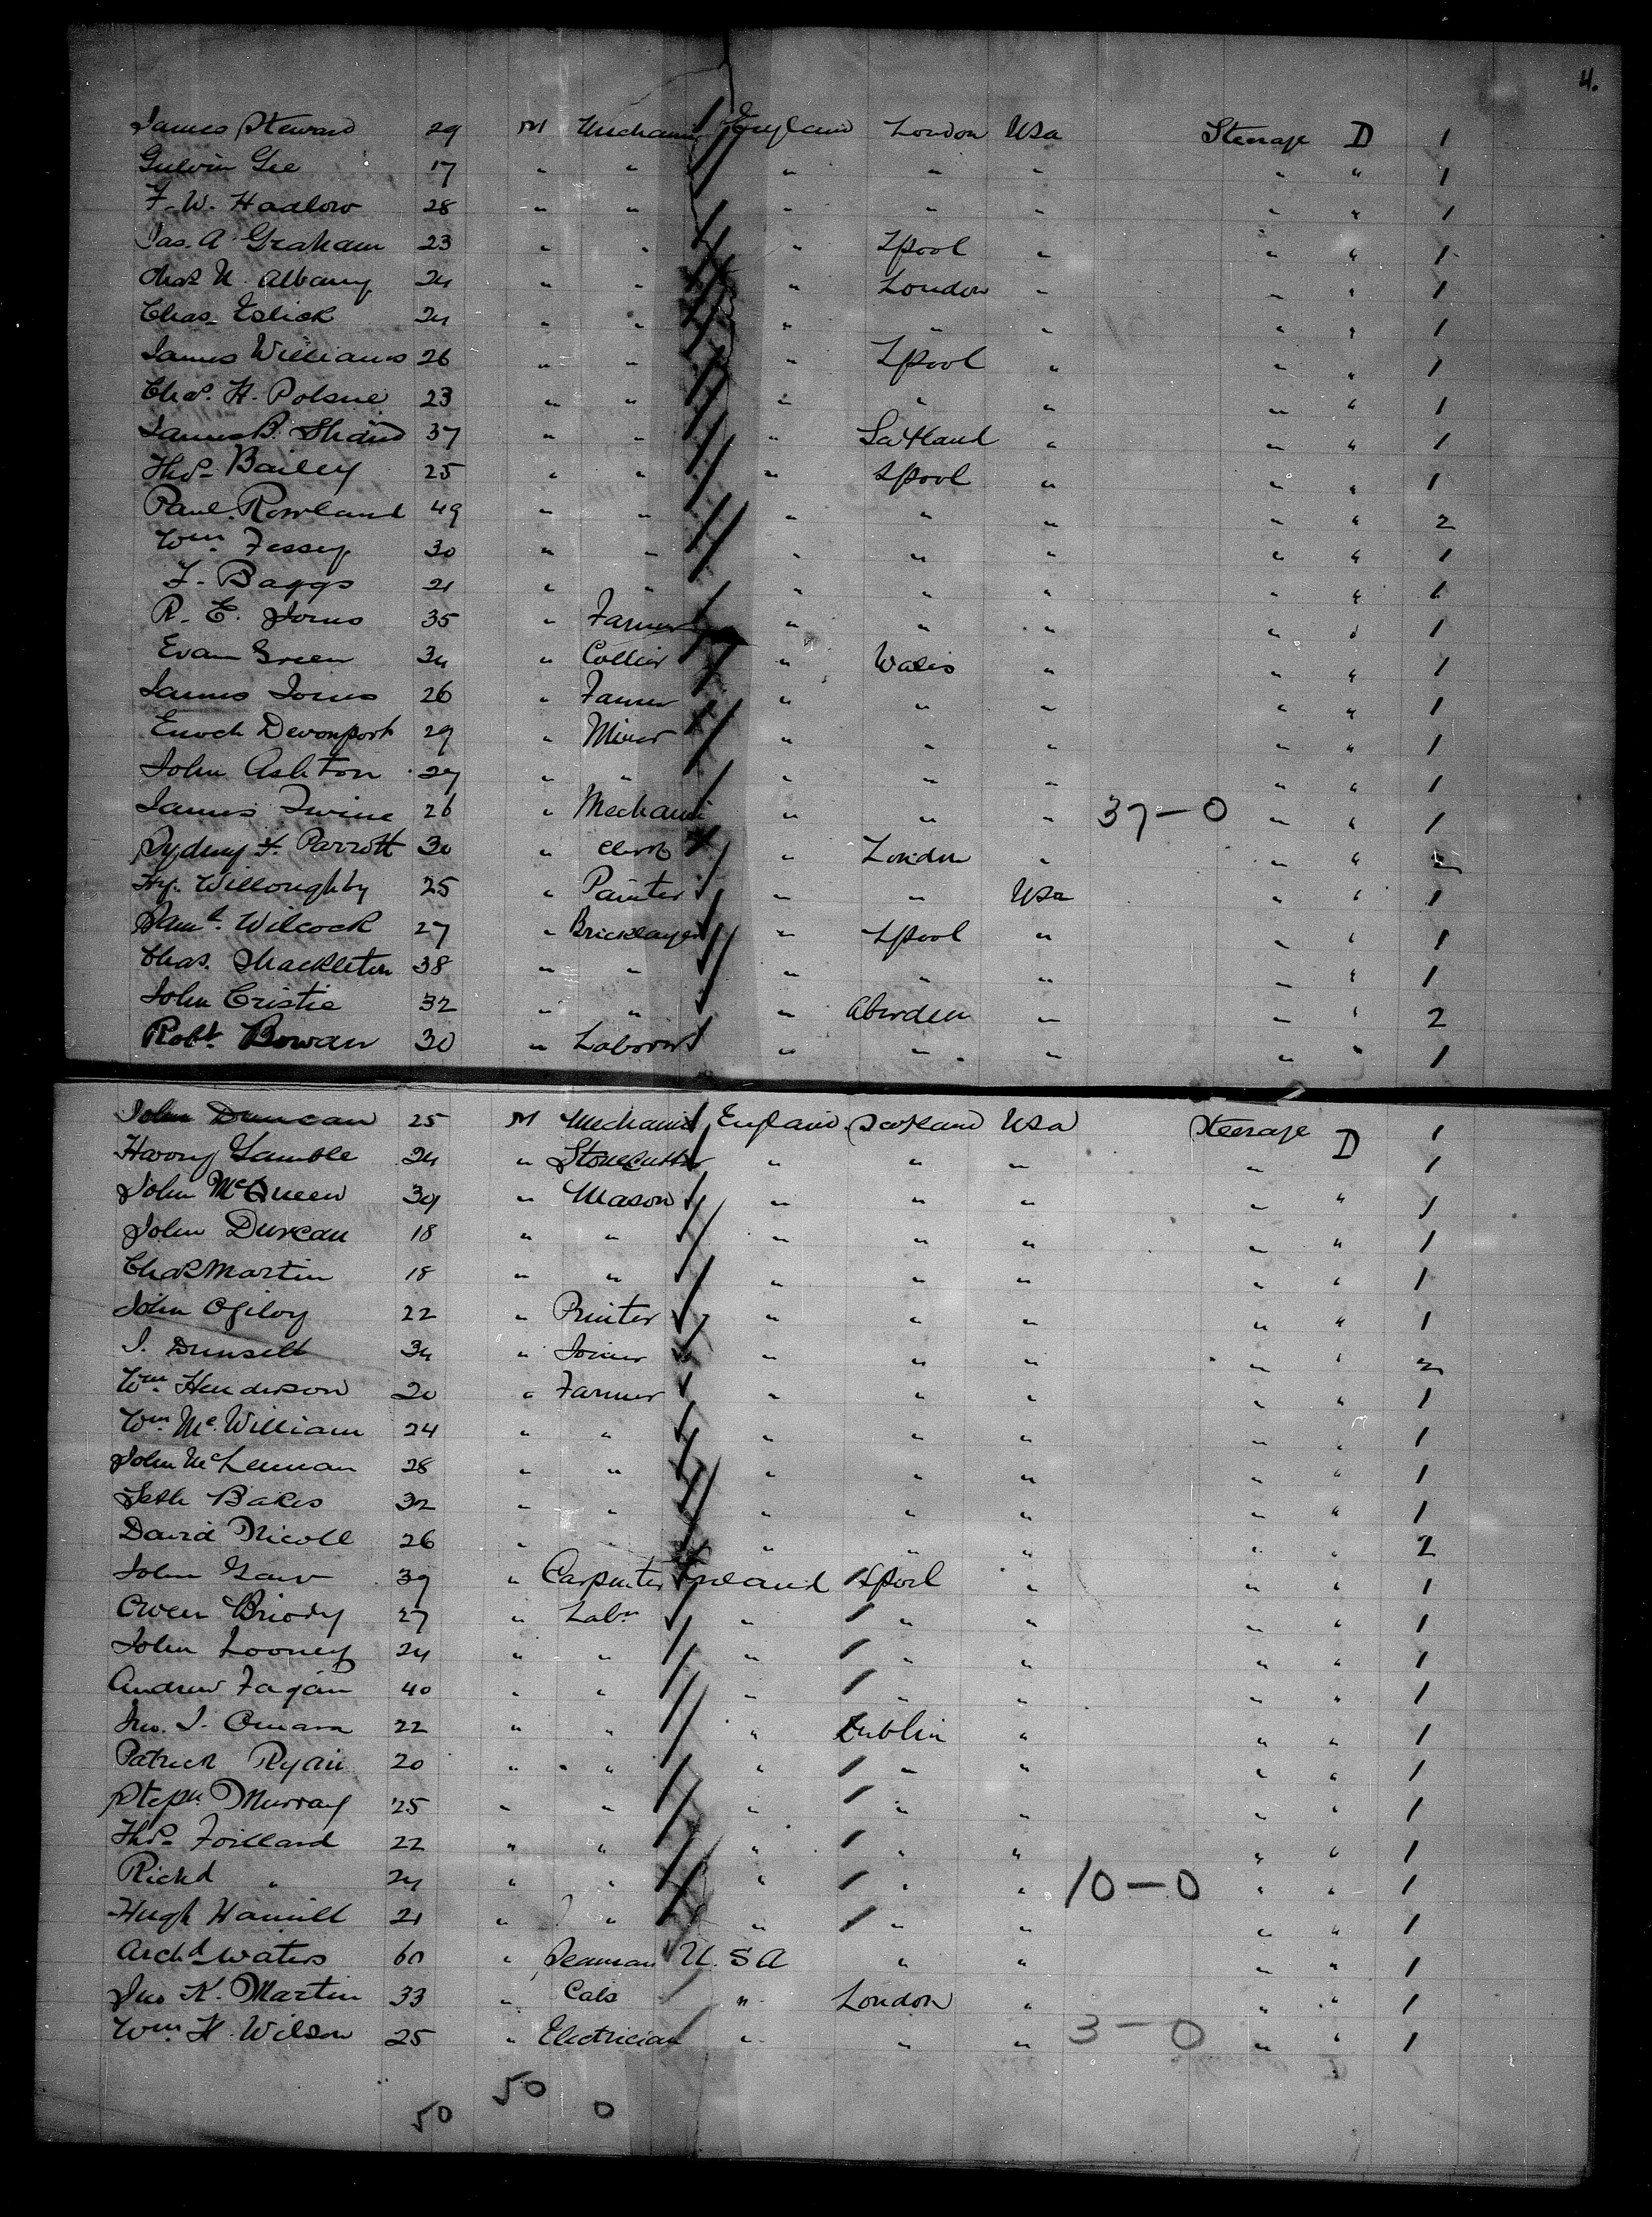 4.
James Steward 29 M Mechanic England London Usa Steerage D 1
Gulvin Gee 17 " " " " " " " 1
F. W. Hadlow 28 " " " " " " " 1
Jas. A. Graham 23 " " " Lpool " " " 1
Chas N. Albany 24 " " " London " " " 1
Chas. Eslick 24 " " " " " " " 1
James Williams 26 " " " Lpool " " " 1
Chas. H. Polsue 23 " " " " " " " 1
James B. Shand 37 " " " Scotland " " " 1
Thos. Bailey 25 " " " Lpool " " " 1
Paul Rowland 49 " " " " " " " 2
Wm Fessey 30 " " " " " " " 1
F. Baggs 21 " " " " " " " 1
R. E. Jones 35 " Farmer " " " " " 1
Evan Green 34 " Collier " Wales " " " 1
James Jones 26 " Farmer " " " " " 1
Enoch Devonport 29 " Miner " " " " " 1
John Ashton 27 " " " " " " " 1
James Irvine 26 " Mechanic " " " 37-0 " " 1
Sydney F. Parrott 30 " Clerk " London " " " 2
Hy. Willoughby 25 " Painter " " Usa " " 1
Saml. Wilcock 27 " Bricklayer " Lpool " " " 1
Chas. Shackleton 38 " " " " " " " 1
John Cristie 32 " " " Aberdeen " " " 2
Robt. Bowan 30 " Laborer " " " " " 1
John Duncan 25 M Mechanic England Scotland Usa Steerage D 1
Harry Gamble 24 " Stonecutter " " " " 1
John McQueen 39 " Mason " " " " " 1
John Duncan 18 " " " " " " " 1
Chas Martin 18 " " " " " " " 1
John Ogilvy 22 " Printer " " " " " 1
J. Dunsell 34 " Joiner " " " " " 2
Wm. Henderson 20 " Farmer " " " " " 1
Wm. Mc.William 24 " " " " " " " 1
John McLennan 28 " " " " " " " 1
Seth Bakes 32 " " " " " " " 1
David Nicoll 26 " " " " " " " 2
John Gaw 39 " Carpenter Ireland Lpool " " " 1
Owen Briody 27 " Labr " " " " " 1
John Looney 24 " " " " " " " 1
Andrew Fagan 40 " " " " " " " 1
Jno. J. Omara 22 " " " Dublin " " " 1
Patrick Ryan 20 " " " " " " " 1
Stepn Murray 25 " " " " " " " 1
Thos. Foillard 22 " " " " " " " 1
Richd " 24 " " " " " 10-0 " " 1
Hugh Hamill 21 " " " " " " " 1
Archd Waters 60 " Seaman U.S.A " " " " 1
Jno K. Martin 33 " " London " " " 1
Wm. H. Wilson 25 " Electrician " " " 3-0 " " 1
50 50 0